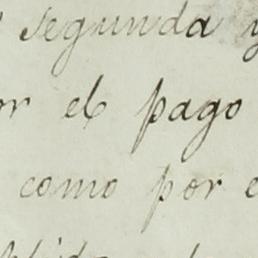 segunda y
or el pago
como por e